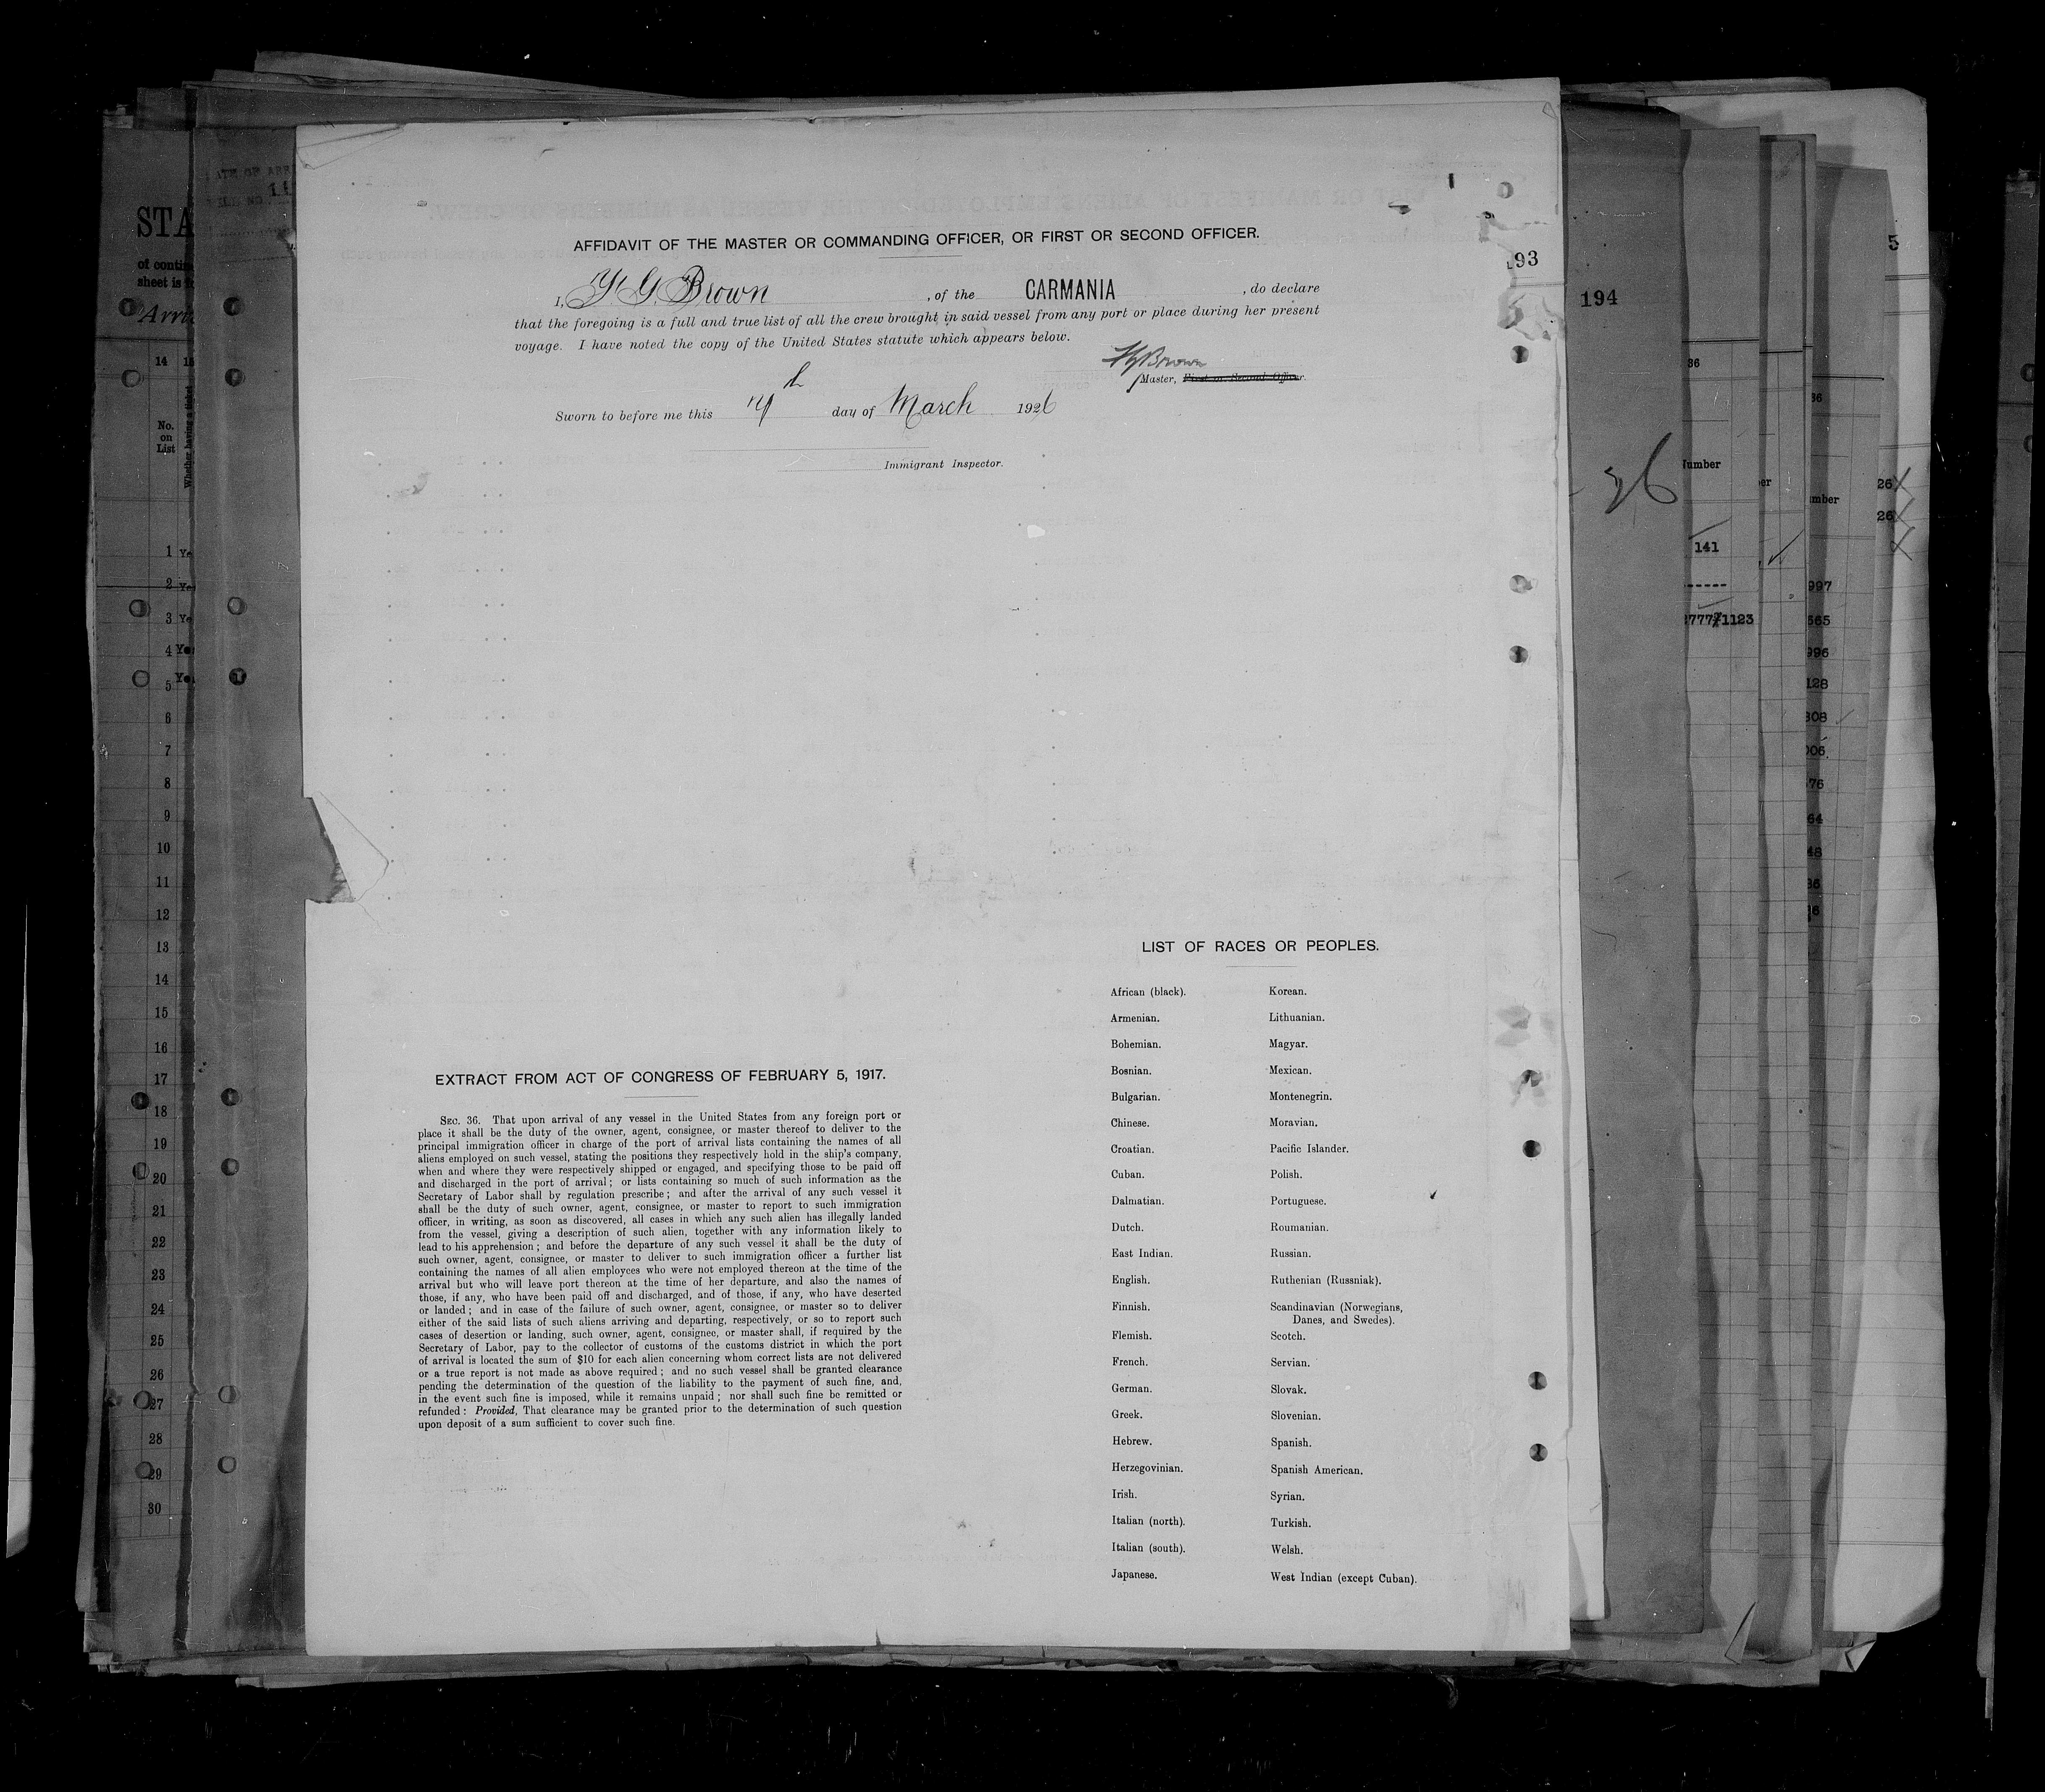 AFFIDAVIT OF THE MASTER OR COMMANDING OFFICER, OR FIRST OR SECOND OFFICER.
I, G. Brown, of the CARMANIA, do declare
that the foregoing is a full and true list of all the crew brought in said vessel from any port or place during her present
voyage. I have noted the copy of the United States statute which appears below.
Brown
Master, First or Second Officer.
Sworn to before me this day of March 1926
Immigrant Inspector.
93
194
36
5
STA
of contin
sheet is
Arri
14
No.
on
List
Whether having a ticket
1 Ye
2 Ye
3 Ye
4 Yes
5 Yes
6
7
8
9
10
11
12
13
14
15
16
17
18
19
20
21
22
23
24
25
26
27
28
29
30
Number
141
1123
26
26
997
565
996
128
308
EXTRACT FROM ACT OF CONGRESS OF FEBRUARY 5, 1917.
SEC. 36. That upon arrival of any vessel in the United States from any foreign port or
place it shall be the duty of the owner, agent, consignee, or master thereof to deliver to the
principal immigration officer in charge of the port of arrival lists containing the names of all
aliens employed on such vessel, stating the positions they respectively hold in the ship's company,
when and where they were respectively shipped or engaged, and specifying those to be paid off
and discharged in the port of arrival; or lists containing so much of such information as the
Secretary of Labor shall by regulation prescribe; and after the arrival of any such vessel it
shall be the duty of such owner, agent, consignee, or master to report to such immigration
officer, in writing, as soon as discovered, all cases in which any such alien has illegally landed
from the vessel, giving a description of such alien, together with any information likely to
lead to his apprehension; and before the departure of any such vessel it shall be the duty of
such owner, agent, consignee, or master to deliver to such immigration officer a further list
containing the names of all alien employees who were not employed thereon at the time of the
arrival but who will leave port thereon at the time of her departure, and also the names of
those, if any, who have been paid off and discharged, and of those, if any, who have deserted
or landed; and in case of the failure of such owner, agent, consignee, or master so to deliver
either of the said lists of such aliens arriving and departing, respectively, or so to report such
cases of desertion or landing, such owner, agent, consignee, or master shall, if required by the
Secretary of Labor, pay to the collector of customs of the customs district in which the port
of arrival is located the sum of $10 for each alien concerning whom correct lists are not delivered
or a true report is not made as above required; and no such vessel shall be granted clearance
pending the determination of the question of the liability to the payment of such fine, and,
in the event such fine is imposed, while it remains unpaid; nor shall such fine be remitted or
refunded: Provided, That clearance may be granted prior to the determination of such question
upon deposit of a sum sufficient to cover such fine.
LIST OF RACES OR PEOPLES.
African (black).
Armenian.
Bohemian.
Bosnian.
Bulgarian.
Chinese.
Croatian.
Cuban.
Dalmatian.
Dutch.
East Indian.
English.
Finnish.
Flemish.
French.
German.
Greek.
Hebrew.
Herzegovinian.
Irish.
Italian (north).
Italian (south).
Japanese.
Korean.
Lithuanian.
Magyar.
Mexican.
Montenegrin.
Moravian.
Pacific Islander.
Polish.
Portuguese.
Roumanian.
Russian.
Ruthenian (Russniak).
Scandinavian (Norwegians,
Danes, and Swedes).
Scotch.
Servian.
Slovak.
Slovenian.
Spanish.
Spanish American.
Syrian.
Turkish.
Welsh.
West Indian (except Cuban).